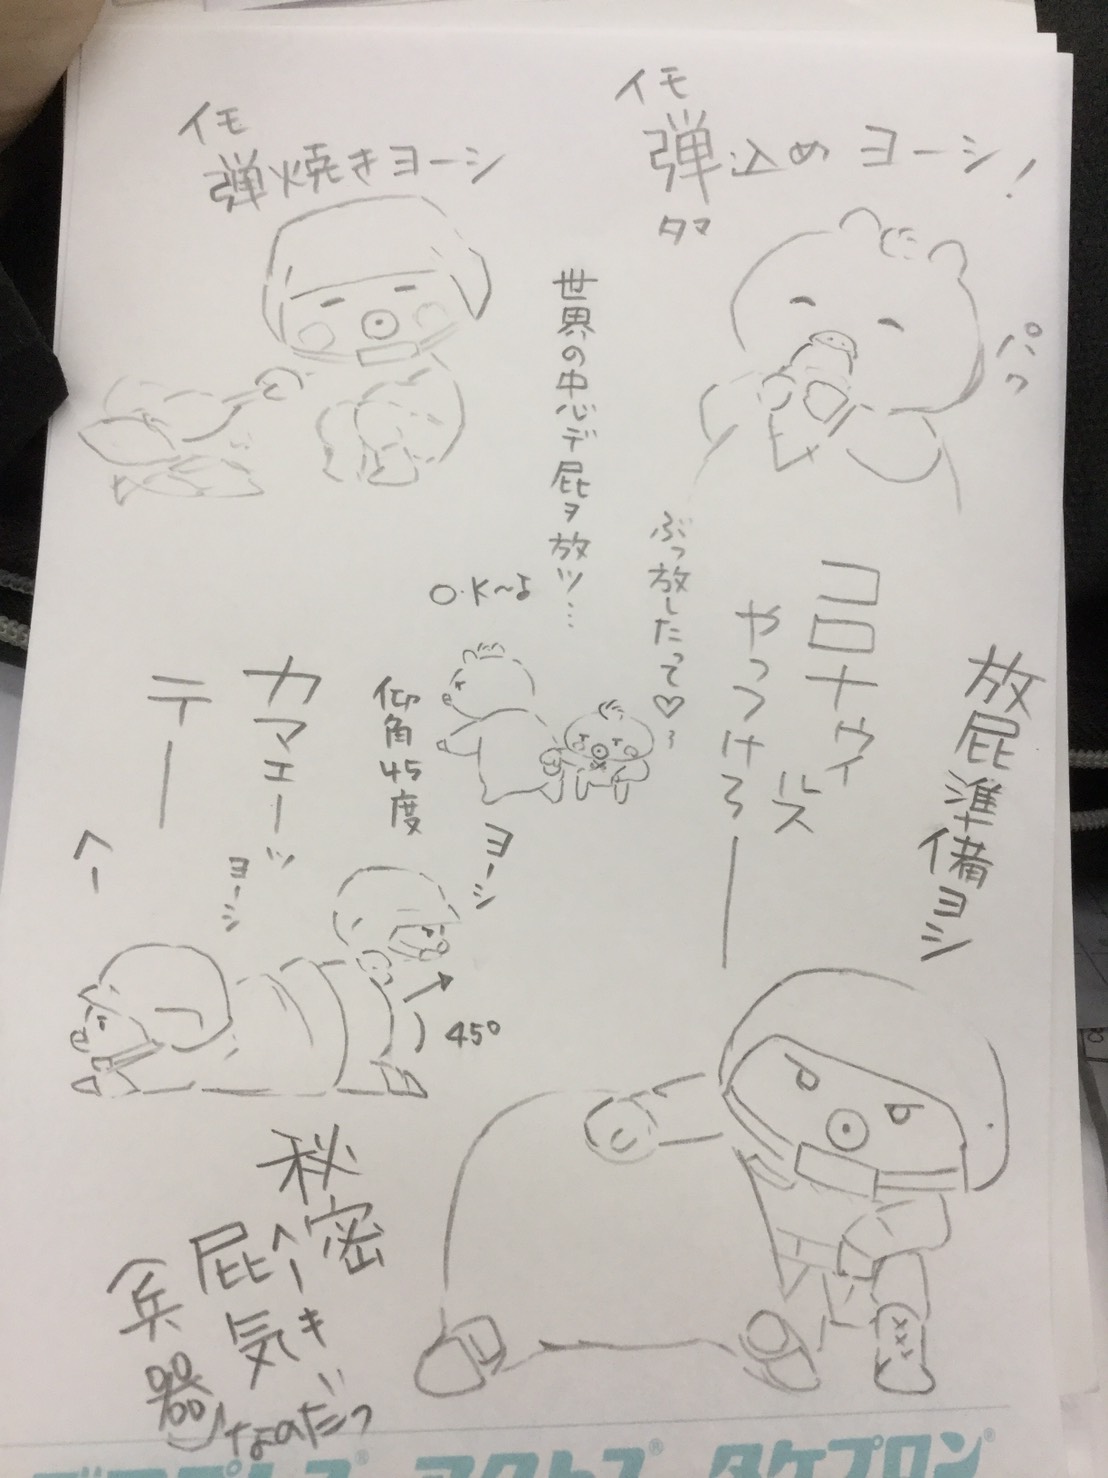 イモ
弾込めヨーシ!
タマ
パクッ
イモ
弾焼きヨーシ
世界の中心デ屁ヲ放ツ…
ぶっ放したって♡
O.K〜よ
コロナウィルス
やっつけろー
放屁準備ヨシ
仰角45度
ヨーシ
カマエーッ
ヨーシ
テー
へー
45°
秘密
屁気
へーき
兵器
なのだっ
アクトス®
タケプロン®